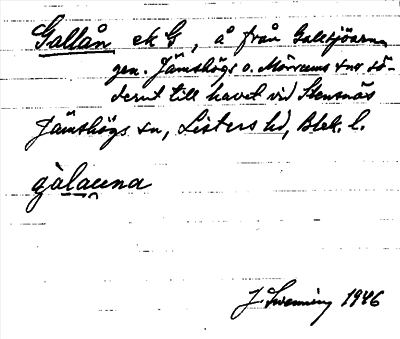 Gallån ek G, å från Gallsjöarna
gen. Jämshögs o. Mörrums snr sö-
derut till havet vid Stensnäs
Jämshögs sn, Listers hd, Blek. l.
gàlauna
J. Swenning 1946